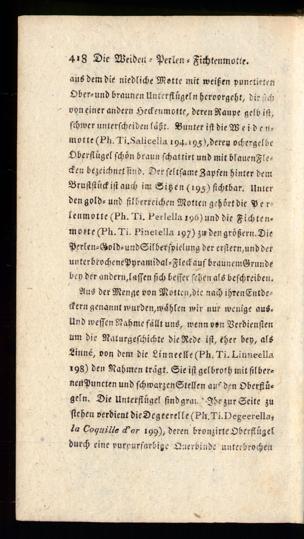 418 Die Weiden = Perlen = Fichtenmotte.
aus dem die niedliche Motte mit weißen punctirten
Ober- und braunen Unterflügeln hervorgeht, die sich
von einer andern Heckenmotte, deren Raupe gelb ist,
schwer unterscheiden läßt. Bunter ist die Weiden-
motte (Ph. Ti. Salicella 194. 195), deren ochergelbe
Oberflügel schön braun schattirt und mit blauen Fle-
cken bezeichnet sind. Der seltsame Zapfen hinter dem
Bruststück ist auch im Sitzen (195) sichtbar. Unter
den gold- und silberreichen Motten gehört die Per-
lenmotte (Ph. Ti. Perlella 196) und die Fichten-
motte (Ph. Ti. Pinetella 197) zu den größern. Die
Perlen-Gold- und Silberspielung der erstern, und der
unterbrochene Pyramidal-Fleck auf braunem Grunde
bey der andern, lassen sich besser sehen als beschreiben.
Aus der Menge von Motten, die nach ihren Entde-
ckern genannt wurden, wählen wir nur wenige aus.
Und wessen Nahme fällt uns, wenn von Verdiensten
um die Naturgeschichte die Rede ist, eher bey, als
Linné, von dem die Linneelle (Ph. Ti. Linneella
198) den Nahmen trägt. Sie ist gelbroth mit silber-
nen Puncten und schwarzen Stellen auf den Oberflü-
geln. Die Unterflügel sind grau. Ihr zur Seite zu
stehen verdient die Degeerelle (Ph. Ti. Degeerella,
la Coquille d'or 199), deren bronzirte Oberflügel
durch eine purpurfarbige Querbinde unterbrochen